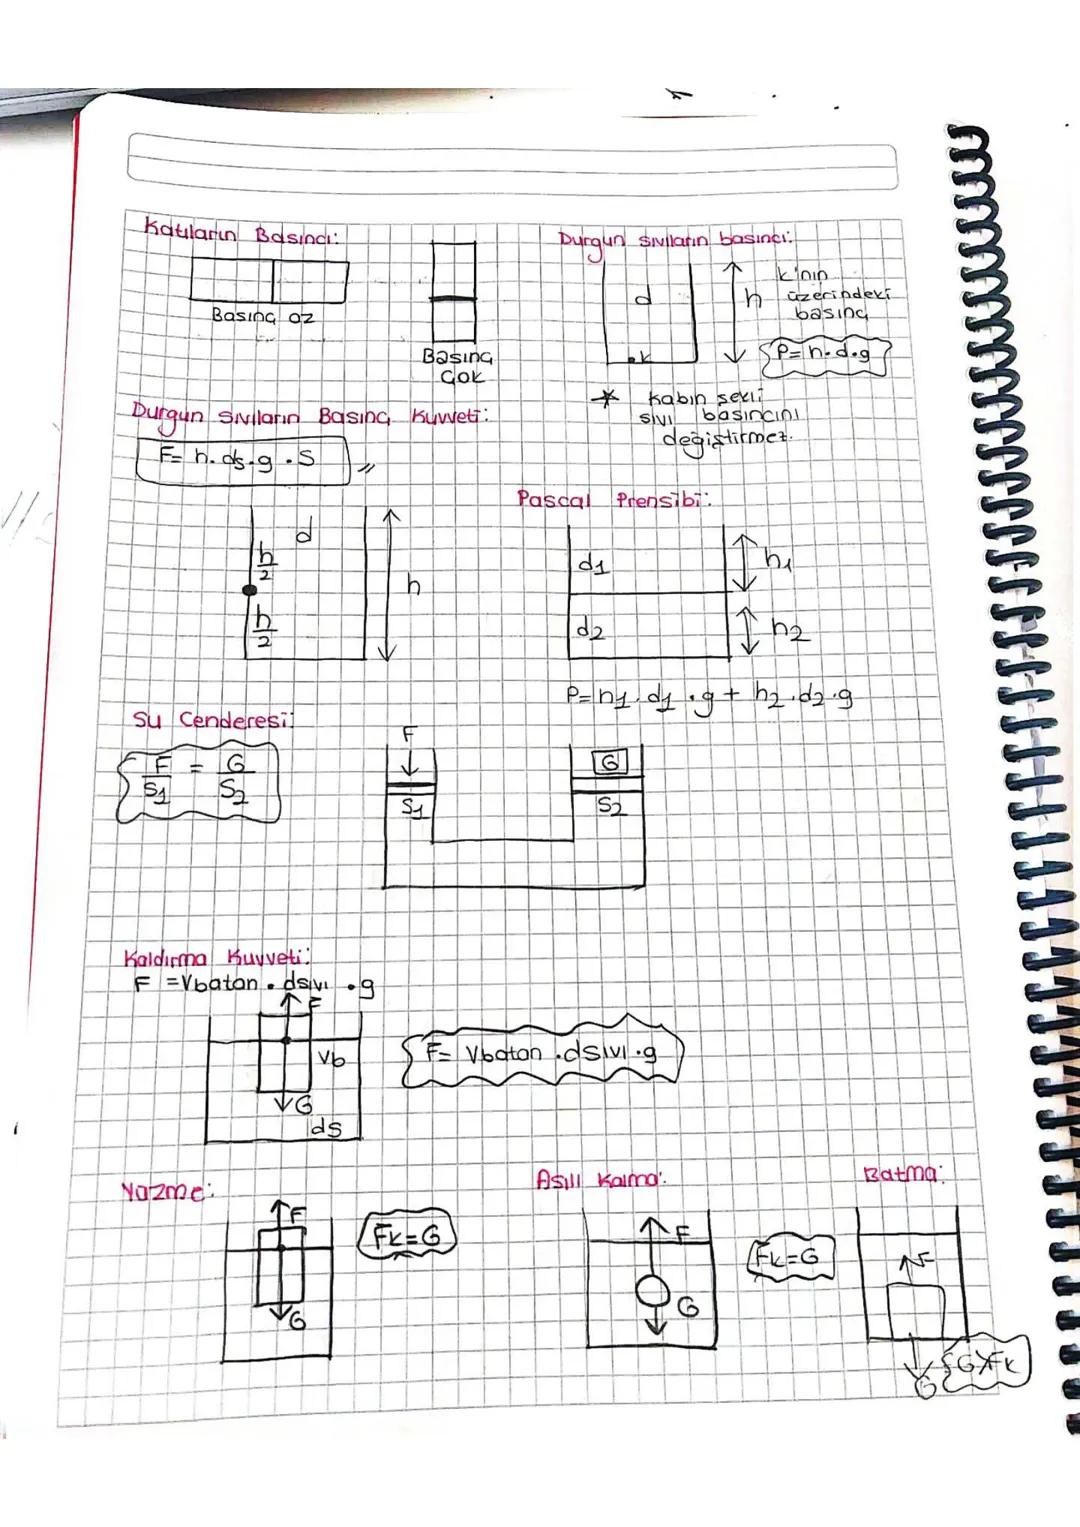 Katıların Basıncı:
Basınç az
Basınç
Çok
Durgun sıvıların basıncı:
d
.k
h
k'nın
üzerindeki
basınç
P= h.d.g
* Kabın şekli
sıvı basıncını
değiştirmez.
Durgun sıvıların Basınç Kuvveti:
F= h.ds.g.S
d
h
2
h
2
h
Pascal Prensibi:
d1
h1
d2
h2
P=h1.d1.g + h2.d2.g
Su Cenderesi:
F = G
S1 S2
F
S1
G
S2
Kaldırma Kuvveti:
F =Vbatan.dsıvı.g
F
Vb
G
ds
F= Vbatan.dsıvı.g
Yüzme:
F
G
Fk=G
Asılı Kalma:
F
G
Fk=G
Batma:
F
G
G>Fk